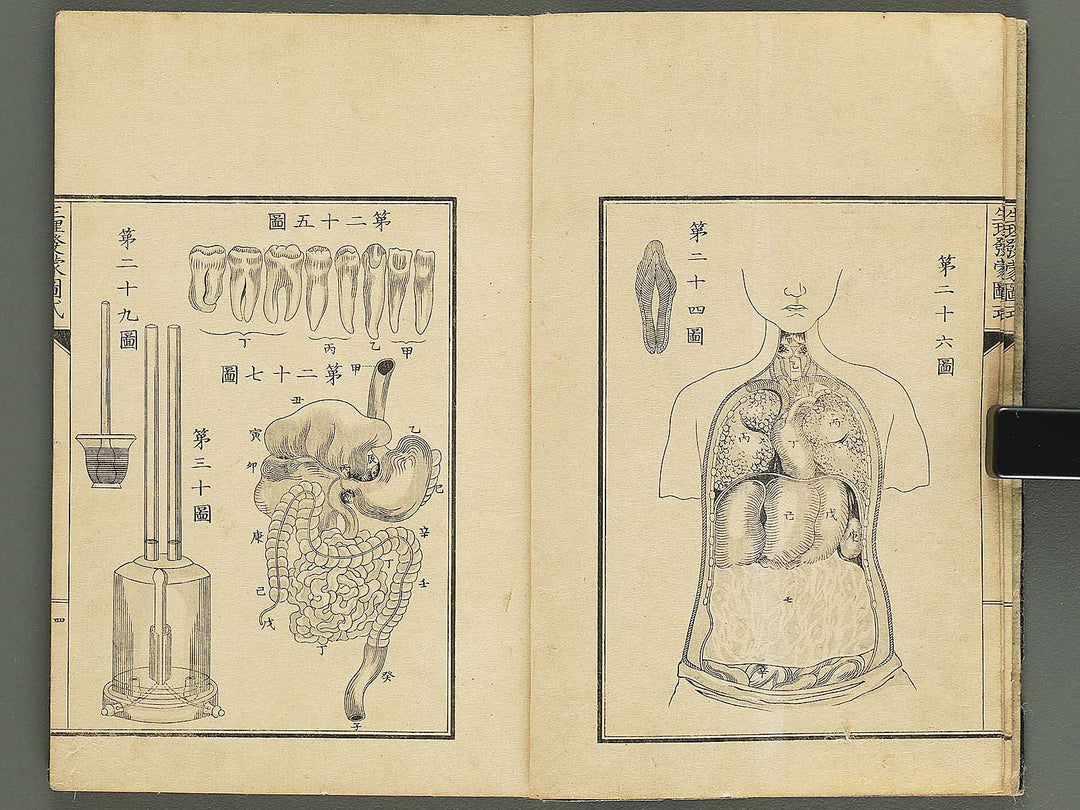 生理發蒙圖式
第二十六圖
第二十四圖
丙
丁
丙
己
戊
庚
壬
辛
第二十五圖
丁
丙
乙
甲
第二十七圖
甲
丑
寅
卯
乙
巳
庚
辛
丁
壬
己
戊
丁
癸
子
第二十九圖
第三十圖
生理發蒙圖式
四